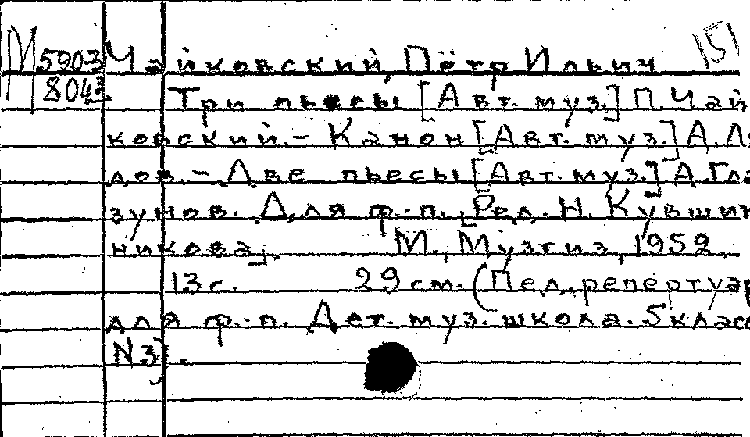 М 5903
8042
Чайковский, Пётр Ильич 151
Три пьесы [Авт. муз.] П. Чай
ковский. - Канон [Авт. муз.] А. Ля
дов. - Две пьесы [Авт. муз.] А. Гла
зунов. Для ф.-п. [Ред. Н. Кувшин
никова]. М., Музгиз, 1952
13 с. 29 см. (Пед. репертуар
для ф.-п. Дет. муз. школа. 5 класс
N3).